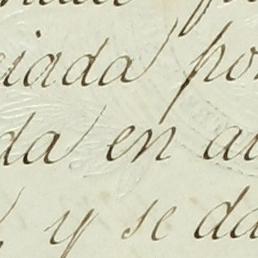 ciada por
da en au
y se da